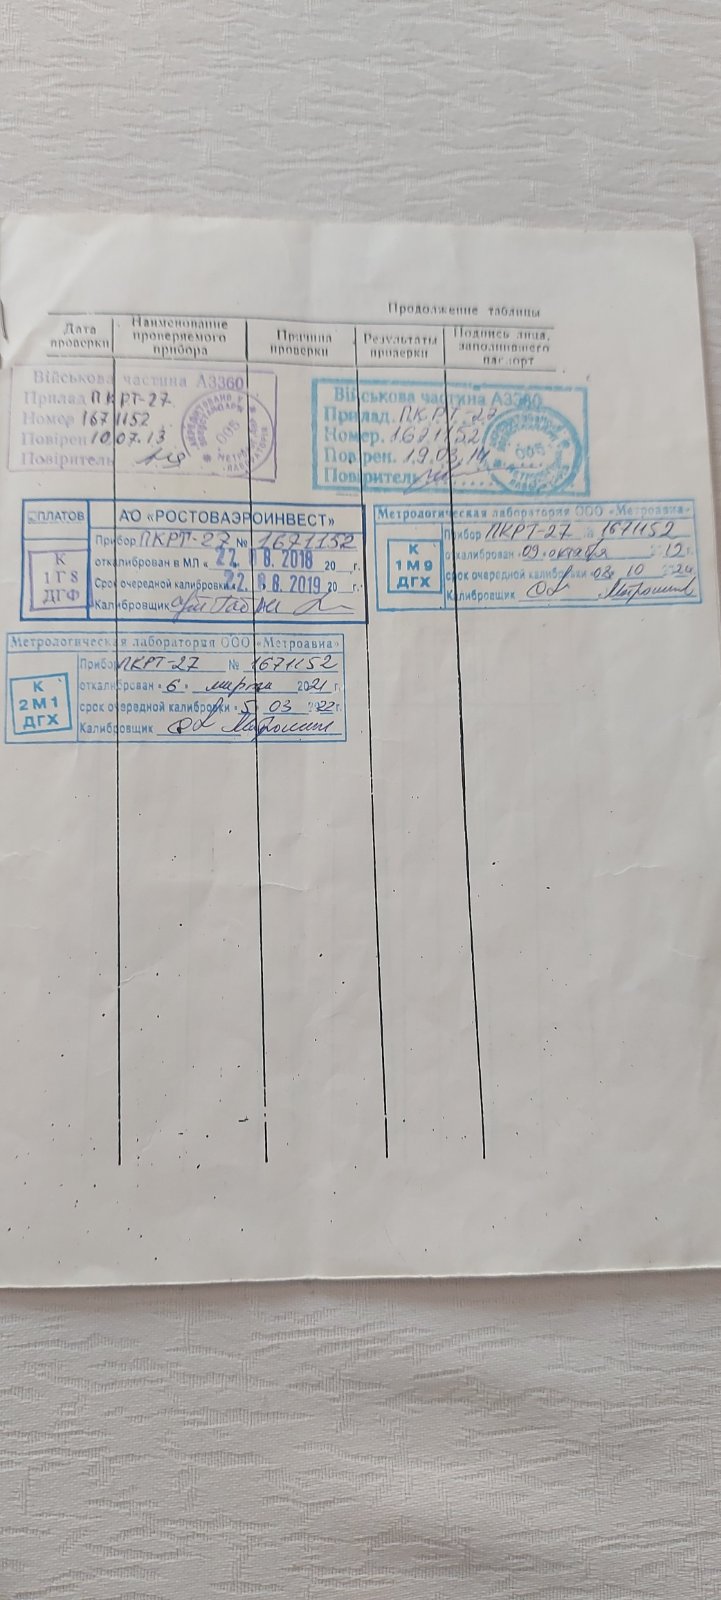 Продолжение таблицы
Дата проверки
Наименование проверяемого прибора
Причина проверки
Результаты проверки
Подпись лица, заполнившего паспорт
Військова частина А3360
Прилад ПКРТ-27
Номер 1671152
Повірен 10.07.13
Повіритель
005
Військова частина А3360
Прилад. ПКРТ-27
Номер. 1671152
Повірен. 19.03.14
Повіритель
005
СПЛАТОВ
АО «РОСТОВАЭРОИНВЕСТ»
К
1 Г 8
ДГФ
Прибор ПКРТ-27 № 1671152
откалиброван в МЛ « 22. 08. 2018 20 г.
Срок очередной калибровки 22. 08. 2019 20 г.
Калибровщик
Метрологическая лаборатория ООО «Метроавиа»
К
1 М 9
ДГХ
Прибор ПКРТ-27 № 1671152
откалиброван 09 октября г.
срок очередной калибровки 08 10
Калибровщик Матрошин
Метрологическая лаборатория ООО «Метроавиа»
К
2 М 1
ДГХ
Прибор ПКРТ-27 № 1671152
откалиброван «6» марта 2021 г.
срок очередной калибровки «5» 03 2022г.
Калибровщик Матрошин